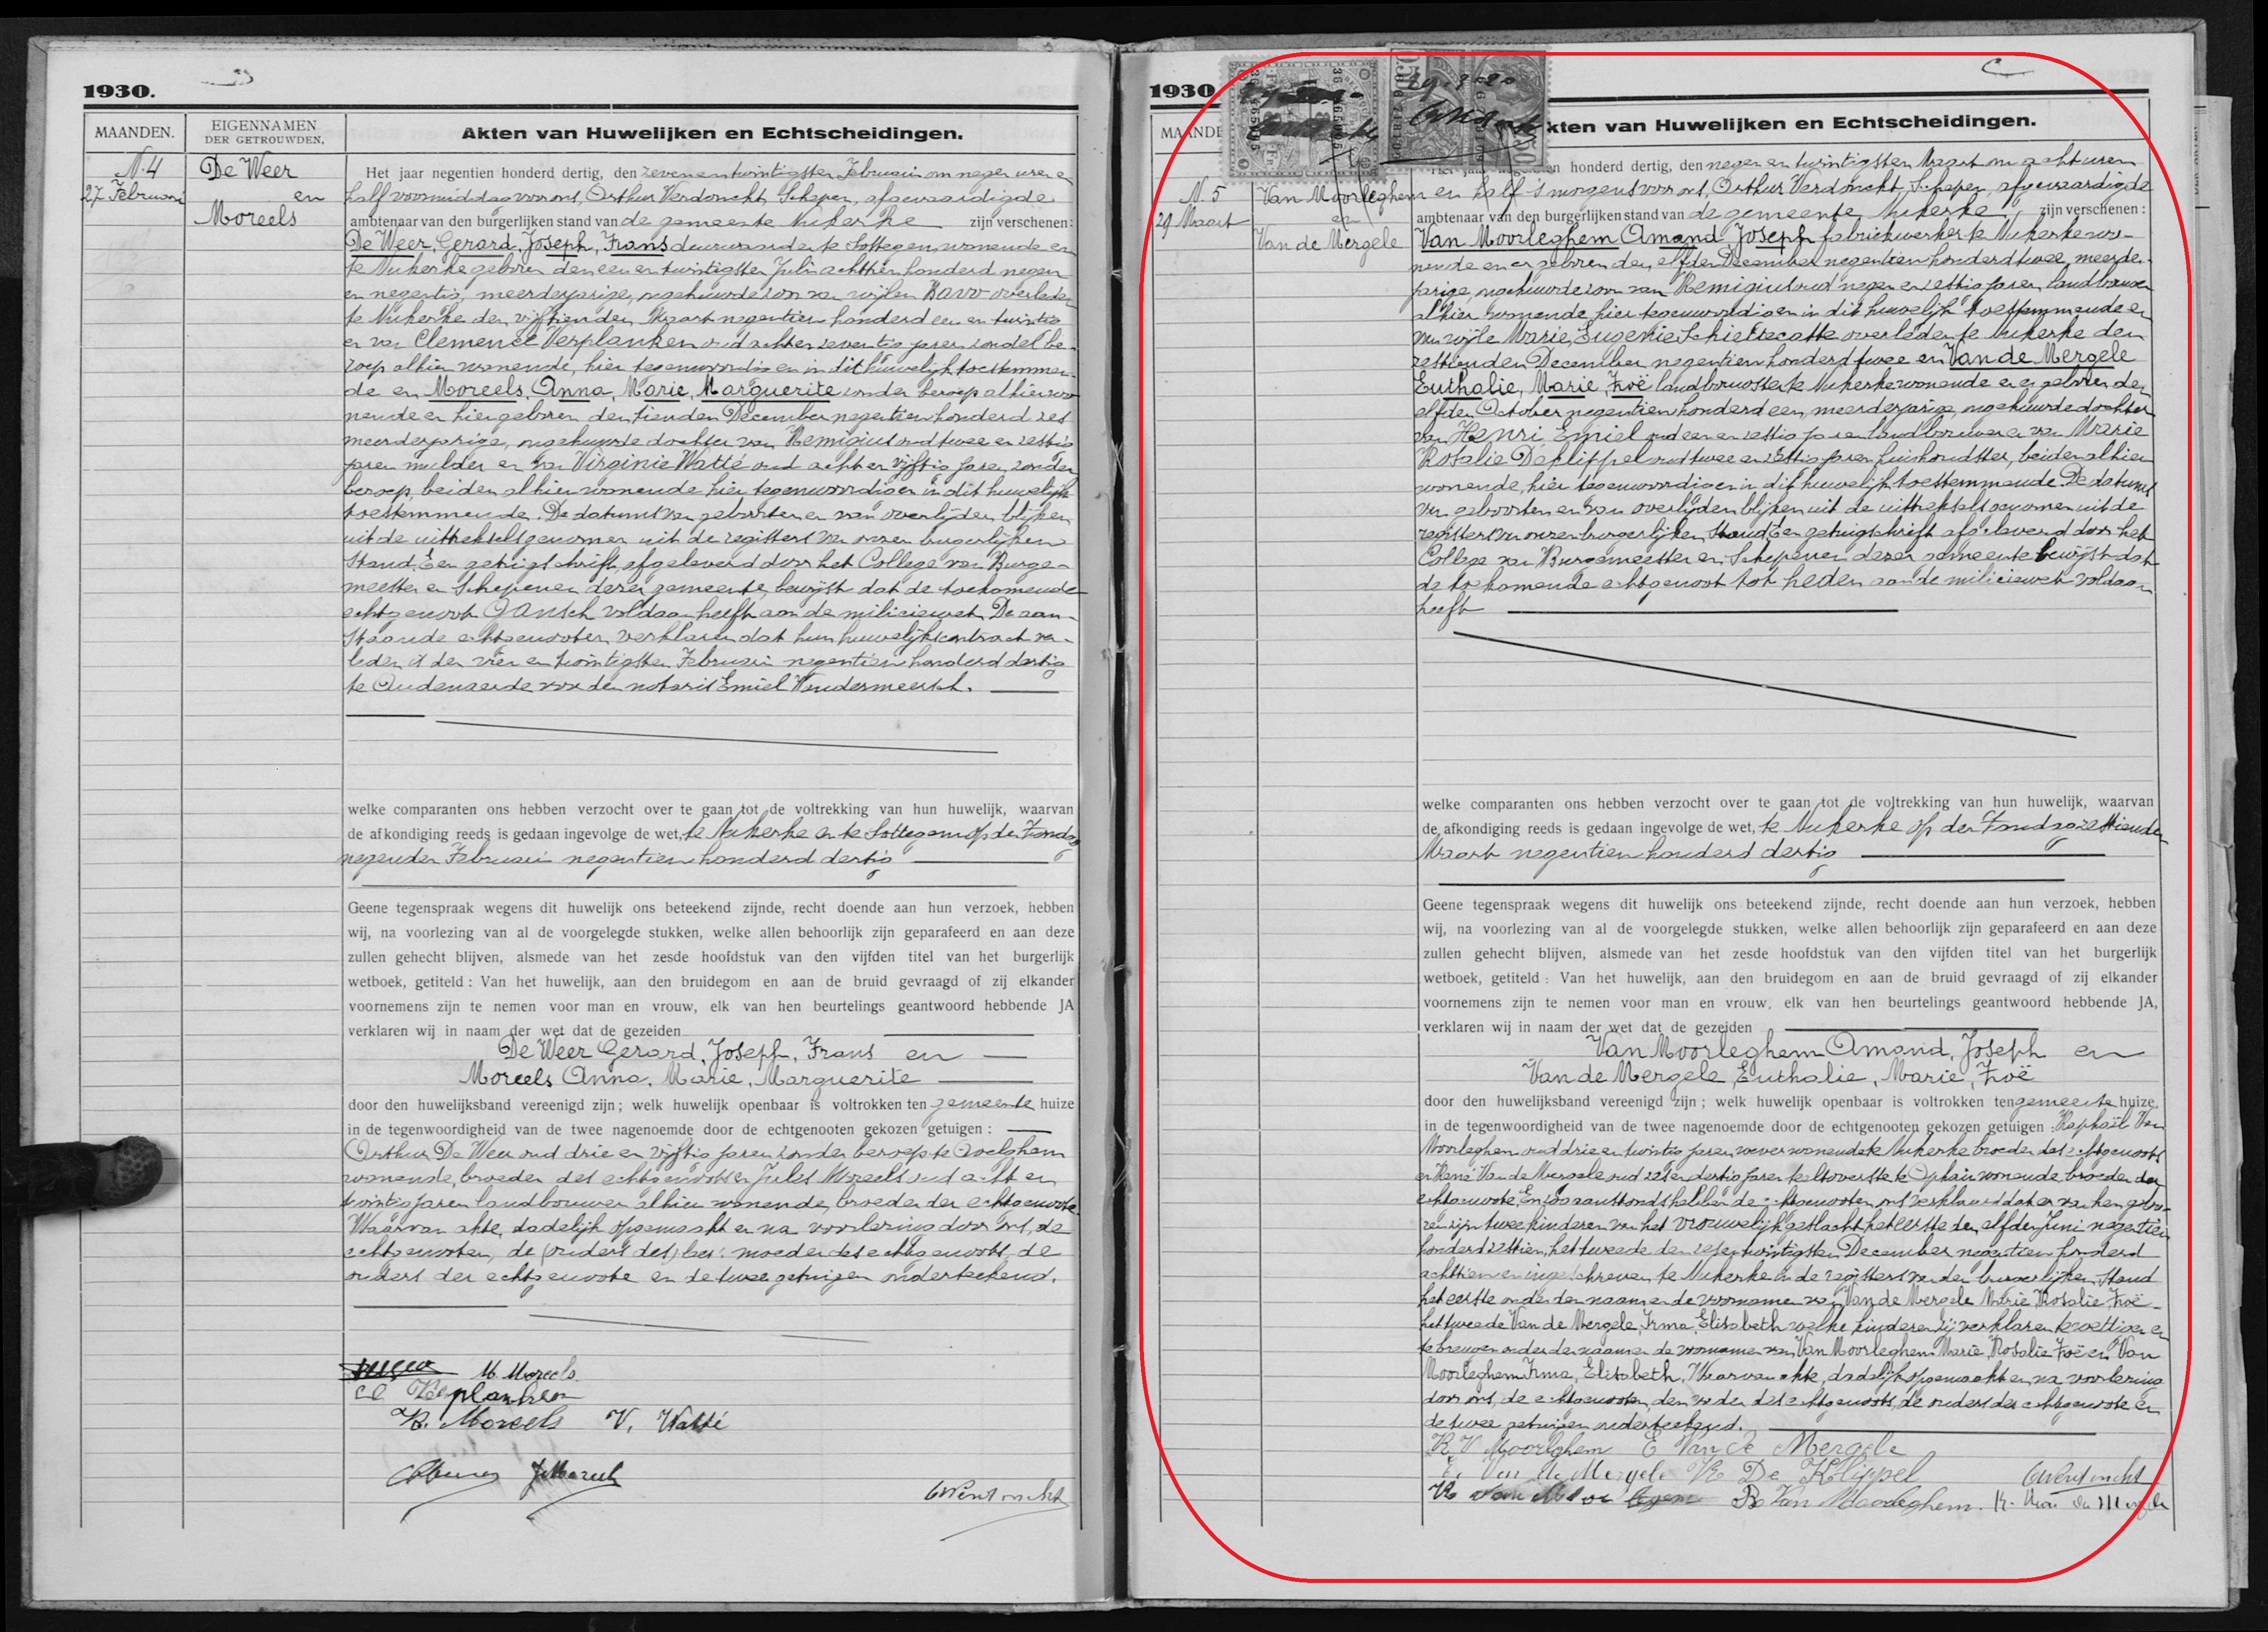 1930.
MAANDEN.
EIGENNAMEN
DER GETROUWDEN.
Akten van Huwelijken en Echtscheidingen.
N. 4
27 Februari
De Weer
en
Moreels
Het jaar negentien honderd dertig, den zeven en twintigsten Februari om negen uren en
half voormiddag voor ons, Arthur Verdonckt, Schepen, afgevaardigde
ambtenaar van den burgerlijken stand van de gemeente Nukerke zijn verschenen:
De Weer, Gerard, Joseph, Frans deurwaarder te Sottegem, wonende en
te Nukerke geboren den een en twintigsten Juli achttien honderd negen
en negentig, meerderjarige, ongehuwde zoon van wijlen Bavo overleden
te Nukerke den vijftienden Maart negentien honderd een en twintig
en van Clemence Verplanken oud acht en zeventig jaren zonder be-
roep alhier wonende, hier tegenwoordig en in dit huwelijk toestemmen-
de en Moreels, Anna, Marie, Marguerite zonder beroep alhier wo-
nende en hier geboren den tienden December negentien honderd zes
meerderjarige, ongehuwde dochter van Remigius oud twee en zestig
jaren mulder en van Virginie Watté oud acht en vijftig jaren, zonder
beroep, beiden alhier wonende hier tegenwoordig en in dit huwelijk
toestemmende. De datums van geboorten en van overlijden blijken
uit de uittreksels genomen uit de registers van onzen burgerlijken
Stand. Een getuigschrift, afgeleverd door het College van Burge-
meester en Schepenen dezer gemeente, bewijst dat de toekomende
echtgenoot gansch voldaan heeft aan de militiewet. De aan-
staande echtgenooten verklaren dat hun huwelijkscontract ver-
leden is den vier en twintigsten Februari negentien honderd dertig
te Audenaerde voor den notaris Emiel Vandermeersch.
welke comparanten ons hebben verzocht over te gaan tot de voltrekking van hun huwelijk, waarvan
de afkondiging reeds is gedaan ingevolge de wet, te Nukerke en te Sottegem op den Zondag
negenden Februari negentien honderd dertig
Geene tegenspraak wegens dit huwelijk ons beteekend zijnde, recht doende aan hun verzoek, hebben
wij, na voorlezing van al de voorgelegde stukken, welke allen behoorlijk zijn geparafeerd en aan deze
zullen gehecht blijven, alsmede van het zesde hoofdstuk van den vijfden titel van het burgerlijk
wetboek, getiteld : Van het huwelijk, aan den bruidegom en aan de bruid gevraagd of zij elkander
voornemens zijn te nemen voor man en vrouw, elk van hen beurtelings geantwoord hebbende JA
verklaren wij in naam der wet dat de gezeiden
De Weer Gerard, Joseph, Frans en
Moreels Anna, Marie, Marguerite
door den huwelijksband vereenigd zijn ; welk huwelijk openbaar is voltrokken ten gemeente huize
in de tegenwoordigheid van de twee nagenoemde door de echtgenooten gekozen getuigen :
Arthur De Weer oud drie en vijftig jaren zonder beroep te Avelghem
wonende, broeder des echtgenoots en Jules Moreels oud acht en
twintig jaren landbouwer alhier wonende, broeder der echtgenoote
Waarvan akte, dadelijk opgemaakt en na voorlezing door ons, de
echtgenooten, de (ouders des) lees: moeder des echtgenoots, de
ouders der echtgenoote en de twee getuigen onderteekend.
M. Moreels
Cl Verplanken
R. Moreels V. Watté
J Moreels
1930
MAANDE
kten van Huwelijken en Echtscheidingen.
N. 5
29 Maart
Van Moorleghem
en
Van de Mergele
Het jaar negentien honderd dertig, den negen en twintigsten Maart om acht uren
en half 's morgens voor ons, Arthur Verdonckt, Schepen, afgevaardigde
ambtenaar van den burgerlijken stand van de gemeente Nukerke, zijn verschenen:
Van Moorleghem Amand, Joseph fabriekwerker te Nukerke wo-
nende en er geboren den elfden December negentien honderd twee, meerder-
jarige, ongehuwde zoon van Remigius oud negen en zestig jaren, landbouwer
alhier wonende hier tegenwoordig en in dit huwelijk toestemmende en
van wijle Marie, Eugenie Schietecatte overleden te Nukerke den
zestienden December negentien honderd twee en Van de Mergele
Euthalie, Marie, Zoë landbouwster te Nukerke wonende en er geboren den
elfden October negentien honderd een, meerderjarige, ongehuwde dochter
van Henri, Emiel oud een en zestig jaren landbouwer en van Marie
Rosalie Deklippel oud twee en zestig jaren huishoudster, beiden alhier
wonende, hier tegenwoordig en in dit huwelijk toestemmende. De datums
van geboorten en van overlijden blijken uit de uittreksels genomen uit de
registers van onzen burgerlijken Stand. Een getuigschrift afgeleverd door het
College van Burgemeester en Schepenen dezer gemeente bewijst dat
de toekomende echtgenoot tot heden aan de militiewet voldaan
heeft
welke comparanten ons hebben verzocht over te gaan tot de voltrekking van hun huwelijk, waarvan
de afkondiging reeds is gedaan ingevolge de wet, te Nukerke op den Zondag zestienden
Maart negentien honderd dertig
Geene tegenspraak wegens dit huwelijk ons beteekend zijnde, recht doende aan hun verzoek, hebben
wij, na voorlezing van al de voorgelegde stukken, welke allen behoorlijk zijn geparafeerd en aan deze
zullen gehecht blijven, alsmede van het zesde hoofdstuk van den vijfden titel van het burgerlijk
wetboek, getiteld : Van het huwelijk, aan den bruidegom en aan de bruid gevraagd of zij elkander
voornemens zijn te nemen voor man en vrouw, elk van hen beurtelings geantwoord hebbende JA,
verklaren wij in naam der wet dat de gezeiden
Van Moorleghem Amand, Joseph en
Van de Mergele, Euthalie, Marie, Zoë
door den huwelijksband vereenigd zijn ; welk huwelijk openbaar is voltrokken ten gemeente huize
in de tegenwoordigheid van de twee nagenoemde door de echtgenooten gekozen getuigen : Raphaël Van
Moorleghem oud drie en twintig jaren wever wonende te Nukerke broeder des echtgenoots
en René Van de Mergele oud zes en dertig jaren te Ophain wonende broeder der
echtgenoote. En de echtgenooten ons verklaard dat er van hen gebo-
ren zijn twee kinderen van het vrouwelijk geslacht het eerste den elfden Juni negentien
honderd zestien, het tweede den zes en twintigsten December negentien honderd
achttien en ingeschreven te Nukerke in de registers van den burgerlijken Stand
het eerste onder den naam en de voornamen van Van de Mergele Marie Rosalie Zoë
het tweede Van de Mergele, Irma, Elisabeth welke kinderen zij verklaren te wettigen en
te brengen onder den naam en de voornamen van Van Moorleghem Marie, Rosalie Zoë en Van
Moorleghem Irma, Elisabeth. Waarvan akte, dadelijk opgemaakt en, na voorlezing
door ons, de echtgenooten, den vader des echtgenoots, de ouders der echtgenoote en
de twee getuigen onderteekend.
R V Moorlghem E Van de Mergele
E. Van de Mergele R De Klippel
R Van Moorleghem. R. Van de Mergele